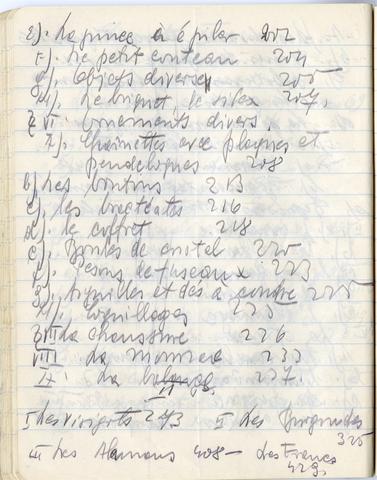 e). La pince à épiler 202
f). Le petit couteau 204
g). Objets divers 205
h). Le briquet, le silex 207.
§ VI. Ornements divers.
a). Chaînettes avec plaques et
pendeloques 208
b). Les boutons 213
c). les bractéates 216
d). le coffret 218
e). Boules de cristal 220
f). Pesons de fuseaux 223
g). Aiguilles et dés à coudre 225
h). coquillages 225
§ VII La chaussure 226
VIII. La monnaie 233
IX. La balance 237.
II
I Les Visigoths 273 II Les Burgondes
325
III Les Alamans 408 — Les Francs
429.